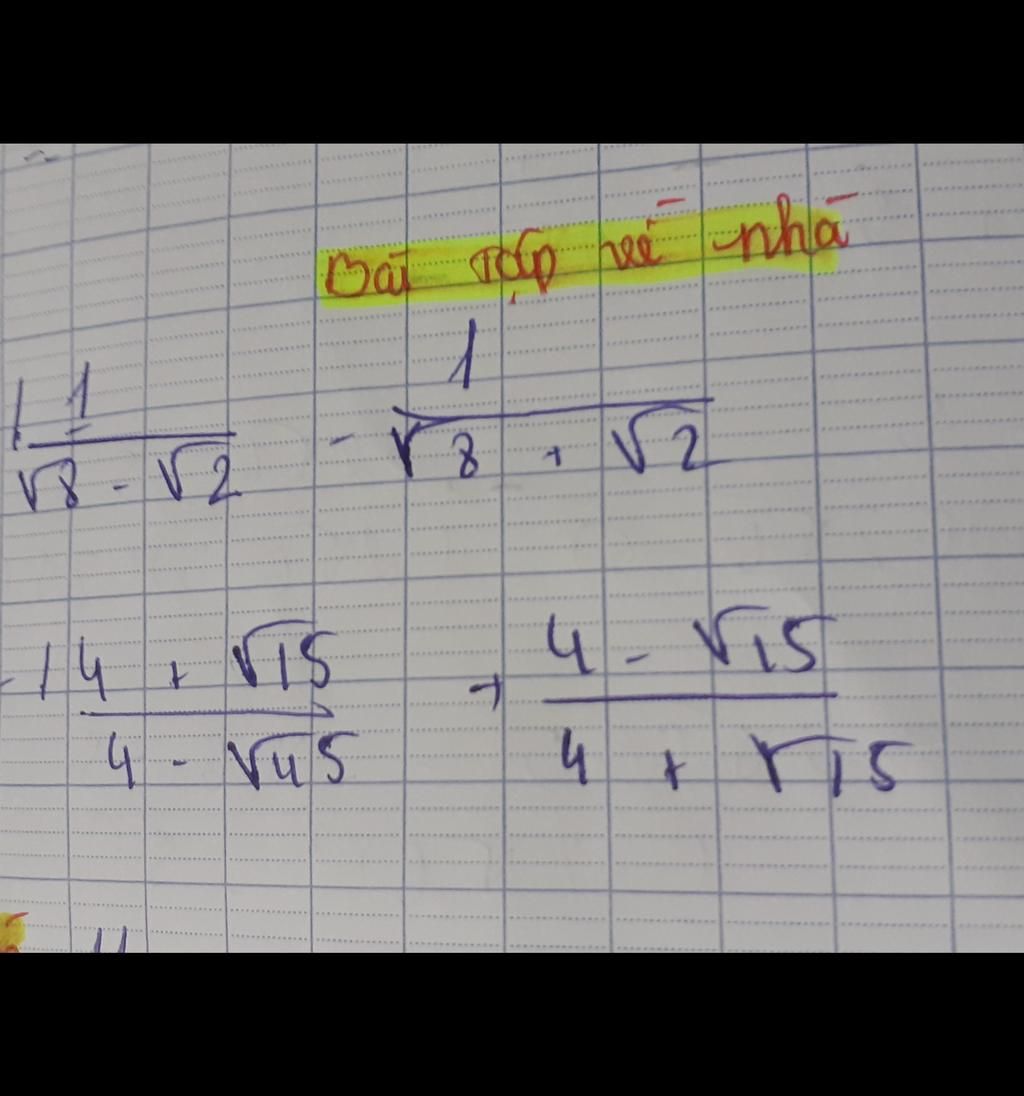 Bài tập về nhà
1/(√8 - √2) - 1/(√8 + √2)
(4 + √15)/(4 - √45) + (4 - √15)/(4 + √15)